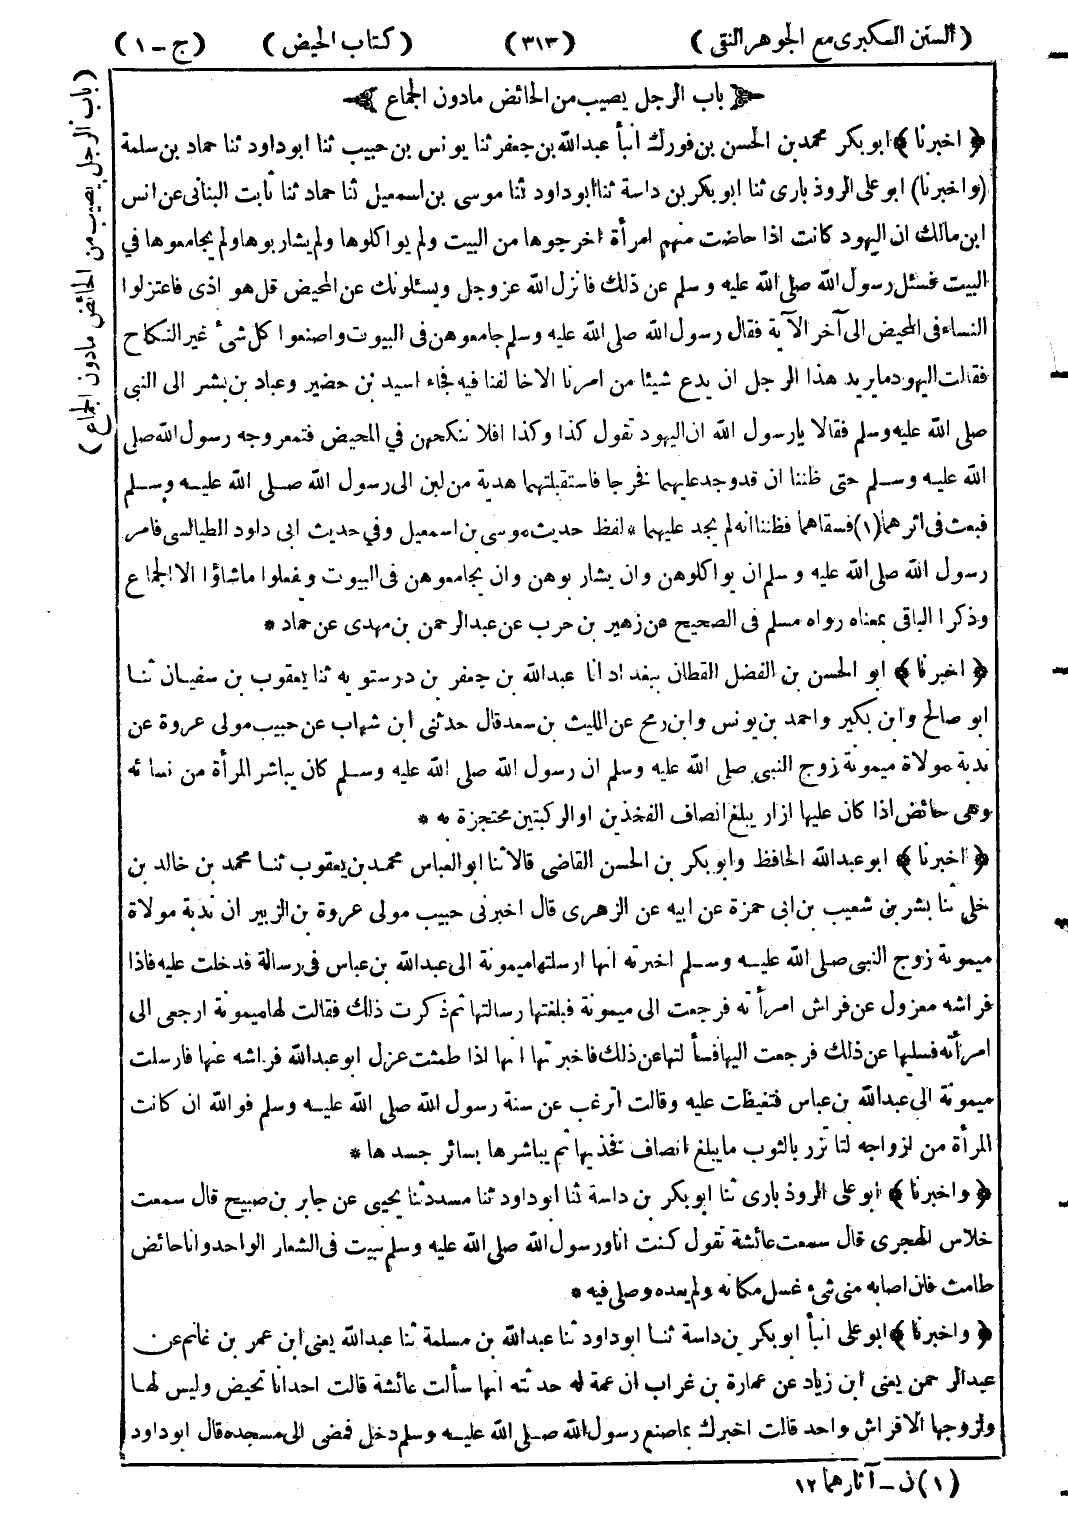 (السنن الكبرى مع الجوهر النقى) (٣١٣) (كتاب الحيض) (ج - ١)
باب الرجل يصيب من الحائض مادون الجماع
﴿ اخبرنا ﴾ ابو بكر محمد بن الحسن بن فورك انبأ عبدالله بن جعفر ثنا يونس بن حبيب ثنا ابو داود ثنا حماد بن سلمة
(واخبرنا) ابو على الروذ بارى ثنا ابو بكر بن داسة ثنا ابو داود ثنا موسى بن اسمعيل ثنا حماد ثنا ثابت البنانى عن انس
ابن مالك ان اليهود كانت اذا حاضت منهم امرأة اخرجوها من البيت ولم يواكلوها ولم يشاربوها ولم يجامعوها في
البيت فسئل رسول الله صلى الله عليه وسلم عن ذلك فانزل الله عز وجل ويسئلونك عن المحيض قل هو اذى فاعتزلوا
النساء فى المحيض الى آخر الآية فقال رسول الله صلى الله عليه وسلم جامعوهن فى البيوت واصنعوا كل شىء غير النكاح
فقالت اليهود ما يريد هذا الرجل ان يدع شيئا من امرنا الا خالفنا فيه فجاء اسيد بن حضير وعباد بن بشر الى النبى
صلى الله عليه وسلم فقالا يا رسول الله ان اليهود تقول كذا وكذا افلا ننكحهن في المحيض فتمعر وجه رسول الله صلى
الله عليه وسلم حتى ظننا ان قد وجد عليهما فخرجا فاستقبلتهما هدية من لبن الى رسول الله صلى الله عليه وسلم
فبعث فى اثرهما (١) فسقاهما فظننا انه لم يجد عليهما * لفظ حديث موسى بن اسمعيل وفي حديث ابى داود الطيالسى فامر
رسول الله صلى الله عليه وسلم ان يواكلوهن وان يشاربوهن وان يجامعوهن فى البيوت ويفعلوا ماشاؤا الا الجماع
وذكرا الباقى بمعناه رواه مسلم فى الصحيح عن زهير بن حرب عن عبدالرحمن بن مهدى عن حماد *
﴿ اخبرنا ﴾ ابو الحسن بن الفضل القطان ببغداد انا عبدالله بن جعفر بن درستويه ثنا يعقوب بن سفيان ثنا
ابو صالح وابن بكير واحمد بن يونس وابن رمح عن الليث بن سعد قال حدثنى ابن شهاب عن حبيب مولى عروة عن
ندبة مولاة ميمونة زوج النبى صلى الله عليه وسلم ان رسول الله صلى الله عليه وسلم كان يباشر المرأة من نسائه
وهى حائض اذا كان عليها ازار يبلغ انصاف الفخذين او الركبتين محتجزة به *
﴿ اخبرنا ﴾ ابو عبدالله الحافظ وابو بكر بن الحسن القاضى قالا ثنا ابو العباس محمد بن يعقوب ثنا محمد بن خالد بن
خلى ثنا بشر بن شعيب بن ابى حمزة عن ابيه عن الزهرى قال اخبرنى حبيب مولى عروة بن الزبير ان ندبة مولاة
ميمونة زوج النبى صلى الله عليه وسلم اخبرته انها ارسلتها ميمونة الى عبدالله بن عباس فى رسالة فدخلت عليه فاذا
فراشه معزول عن فراش امرأته فرجعت الى ميمونة فبلغتها رسالتها ثم ذكرت ذلك فقالت لها ميمونة ارجعى الى
امرأته فسليها عن ذلك فرجعت اليها فسألتها عن ذلك فاخبرتها انها اذا طمثت عزل ابو عبدالله فراشه عنها فارسلت
ميمونة الى عبدالله بن عباس فتغيظت عليه وقالت اترغب عن سنة رسول الله صلى الله عليه وسلم فوالله ان كانت
المرأة من ازواجه لتاتزر بالثوب ما يبلغ انصاف فخذيها ثم يباشرها بسائر جسدها *
﴿ واخبرنا ﴾ ابو على الروذ بارى ثنا ابو بكر بن داسة ثنا ابو داود ثنا مسدد ثنا يحيى عن جابر بن صبيح قال سمعت
خلاس الهجرى قال سمعت عائشة تقول كنت انا ورسول الله صلى الله عليه وسلم نبيت فى الشعار الواحد وانا حائض
طامث فان اصابه منى شىء غسل مكانه ولم يعده وصلى فيه *
﴿ واخبرنا ﴾ ابو على انبأ ابو بكر بن داسة ثنا ابو داود ثنا عبدالله بن مسلمة ثنا عبدالله يعنى ابن عمر بن غانم عن
عبدالرحمن يعنى ابن زياد عن عمارة بن غراب ان عمة له حدثته انها سألت عائشة قالت احدانا تحيض وليس لها
ولزوجها الا فراش واحد قالت اخبرك بما صنع رسول الله صلى الله عليه وسلم دخل فمضى الى مسجده قال ابو داود
(١) ن - آثارهما ١٢
(باب الرجل يصيب من الحائض مادون الجماع)